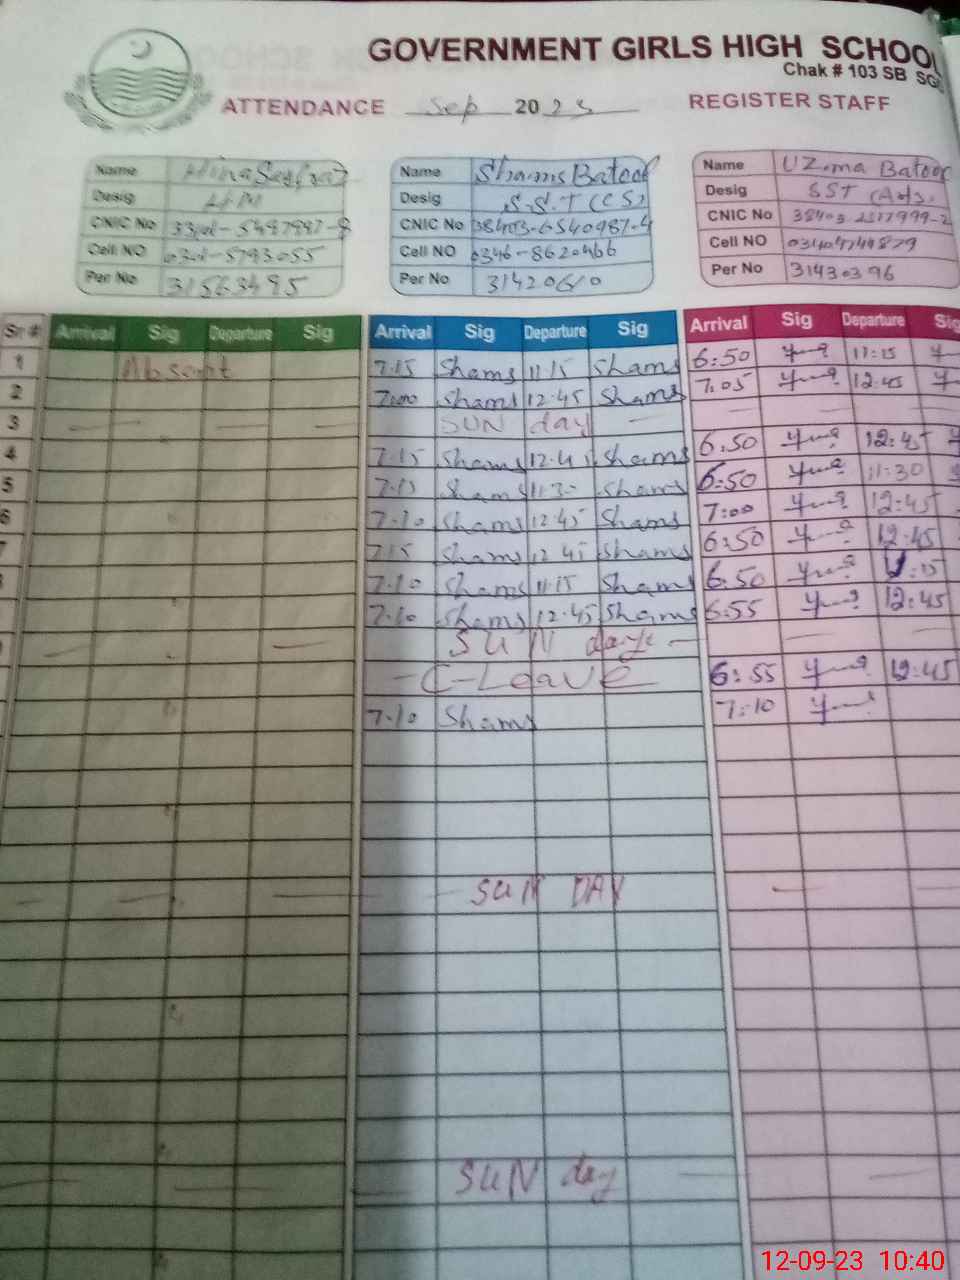 GOVERNMENT GIRLS HIGH SCHOOL
Chak # 103 SB SG
ATTENDANCE Sep 2023 REGISTER STAFF
Name Hina
Desig H.M
CNIC No
Cell NO
Per No 31563495
Name Shams Batool
Desig S.S.T (CS)
CNIC No 38403-6540987-4
Cell NO 0346-8620466
Per No 31420610
Name Uzma Batool
Desig SST (Arts)
CNIC No
Cell NO
Per No 31430396
Sr # Arrival Sig Departure Sig Arrival Sig Departure Sig Arrival Sig Departure Sig
1 Absent 7.15 Shams 11.15 Shams 6:50 11:15
2 7.00 Shams 12.45 Shams 7.05 12:45
3 SUN day
4 7.15 Shams 12.45 Shams 6.50 12:45
5 7.15 Shams 11.30 Shams 6.50 11:30
6 7.10 Shams 12.45 Shams 7:00 12:45
7.15 Shams 12.45 Shams 6:50 12:45
7.10 Shams 11.15 Shams 6.50 :15
7.10 Shams 12.45 Shams 6.55 12:45
SUN day
C-Leave 6:55 12:45
7.10 Shams 7:10
SUN DAY
SUN day
12-09-23 10:40